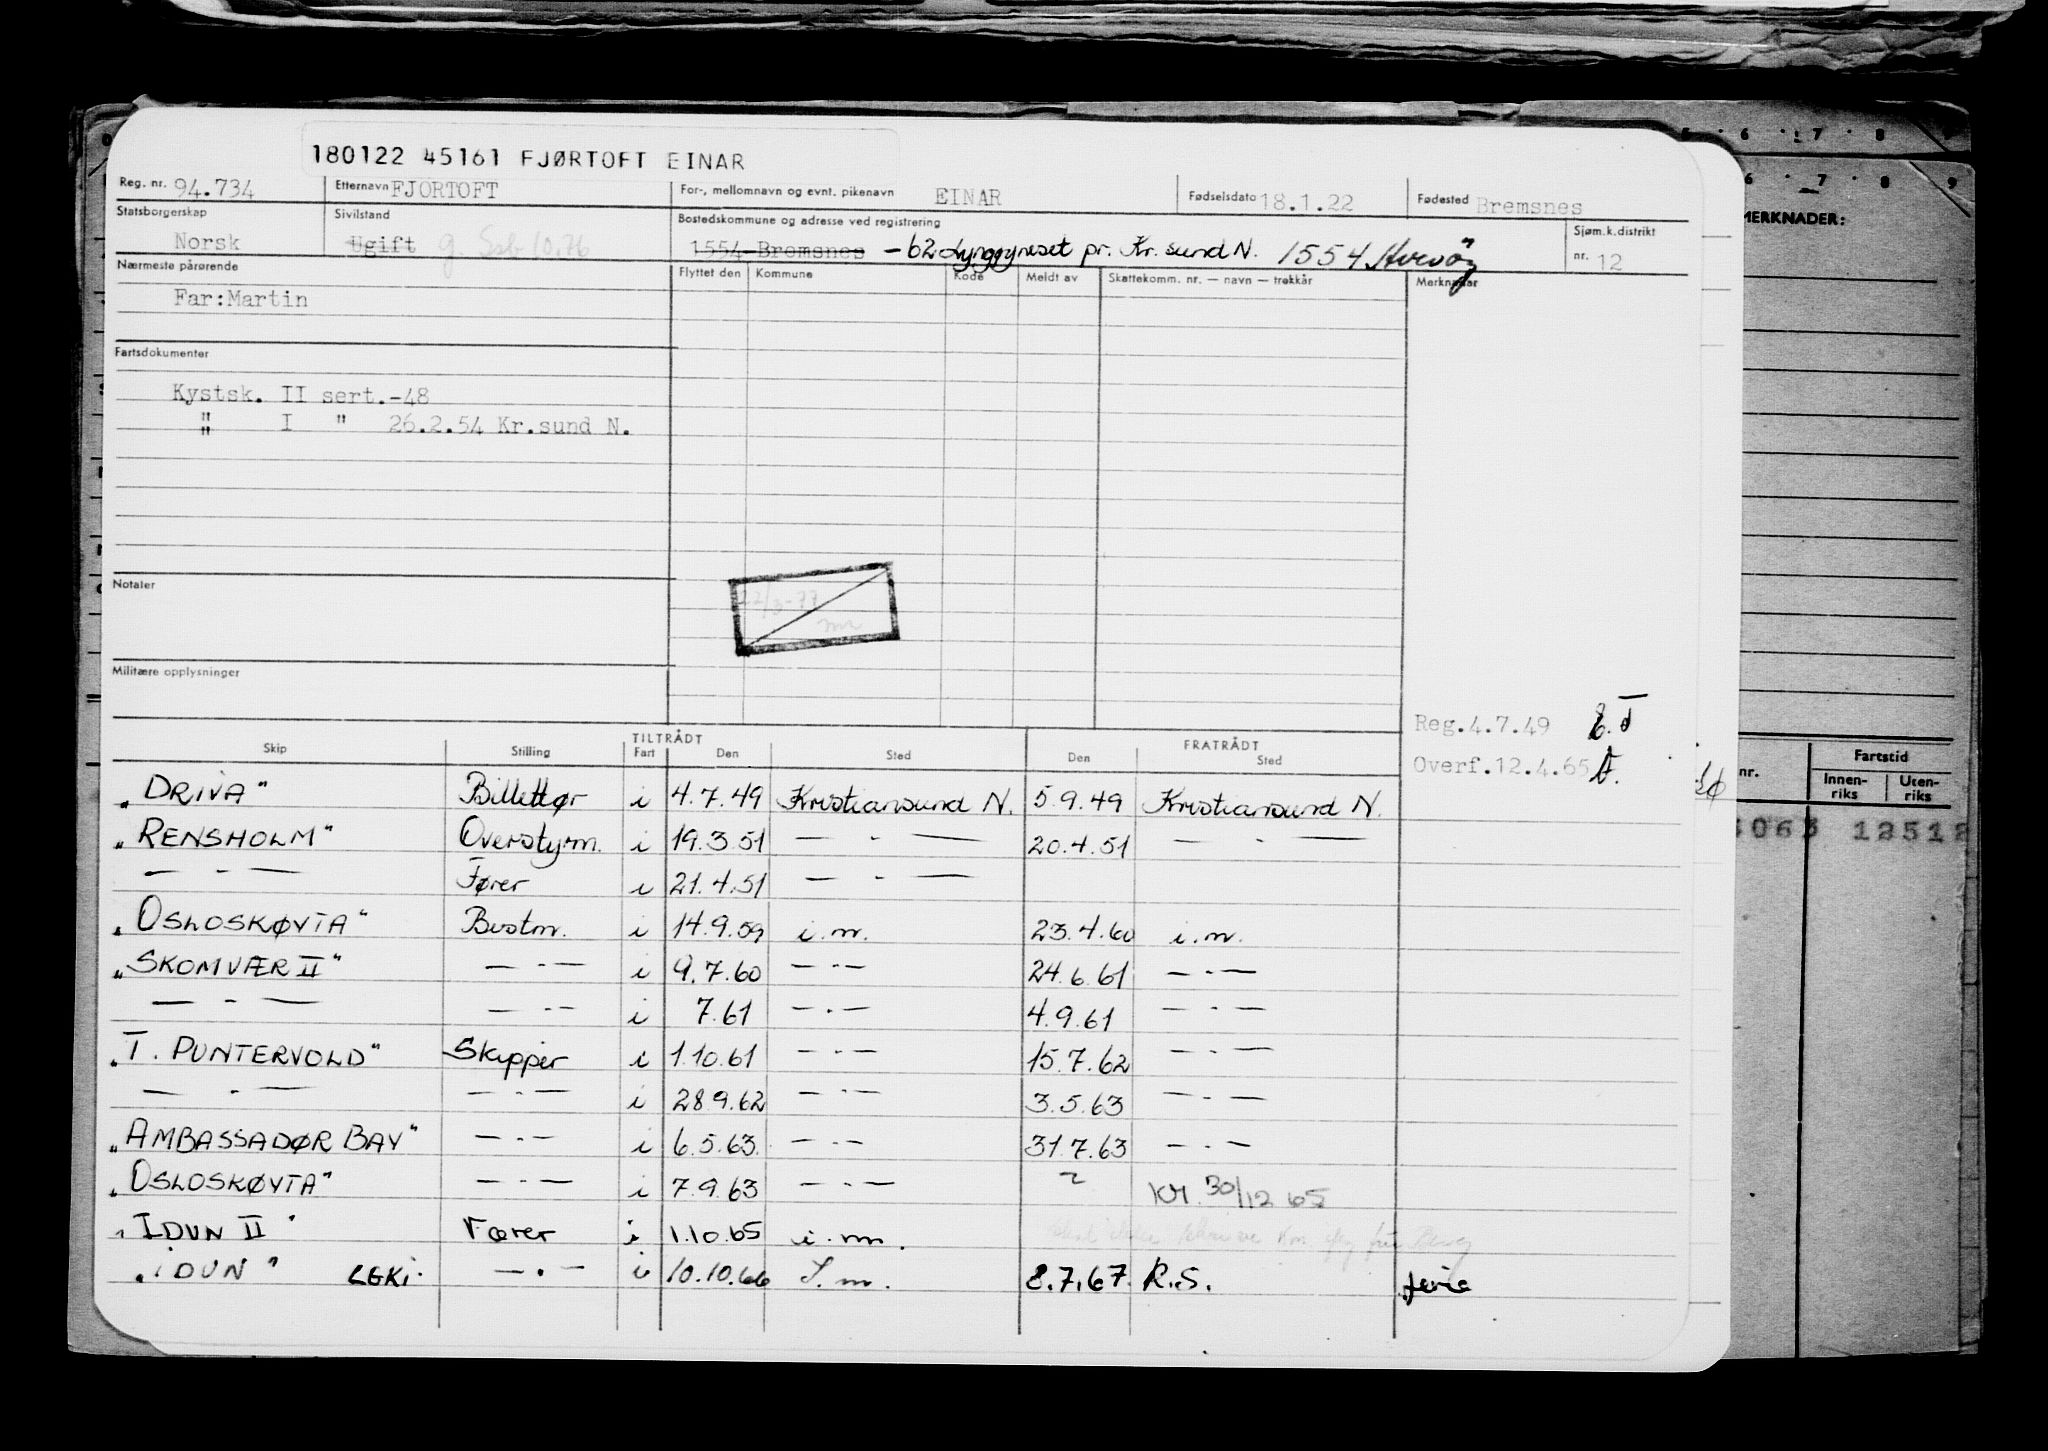 180122 45161 FJØRTOFT EINAR
Reg. nr. 94.734 Etternavn FJØRTOFT For-, mellomnavn og evnt. pikenavn EINAR Fødselsdato 18.1.22 Fødested Bremsnes
Statsborgerskap Sivilstand Bostedskommune og adresse ved registrering Sjøm.k.distrikt
Norsk Ugift g. 10.76 1554 Bremsnes - 62 pr. Kr. sund N. 1554 Averøy nr. 12
Nærmeste pårørende Flyttet den Kommune Kode Meldt av Skattekomm. nr. — navn — trekkår Merknader
Far:Martin
Fartsdokumenter
Kystsk. II sert.-48
" I " 26.2.54 Kr.sund N.
Notater
22/3-77
Militære opplysninger
Reg.4.7.49
Overf.12.4.65
TILTRÅDT FRATRÅDT
Skip Stilling Fart Den Sted Den Sted
„DRIVA" Billettør i 4.7.49 Kristiansund N. 5.9.49 Kristiansund N.
„RENSHOLM" Overstyrm. i 19.3.51 — - — 20.4.51 — - —
— - — Fører i 21.4.51 — - —
„OSLOSKØYTA" Bestm. i 14.9.59 i.m. 23.4.60 i.m.
„SKOMVÆR II" — - — i 9.7.60 — - — 24.6.61 — - —
— - — — - — i 7.61 — - — 4.9.61 — - —
„T. PUNTERVOLD" Skipper i 1.10.61 — - — 15.7.62 — - —
— - — — - — i 28.9.62 — - — 3.5.63 — - —
„AMBASSADØR BAY" — - — i 6.5.63 — - — 31.7.63 — - —
„OSLOSKØYTA" — - — i 7.9.63 — - — 30/12 65
„IDUN II" Fører i 1.10.65 i.m.
„IDUN" LEKI — - — i 10.10.66 8.7.67 R.S.
MERKNADER:
nr. Fartstid
Innen-riks Uten-riks
6 7 8 9